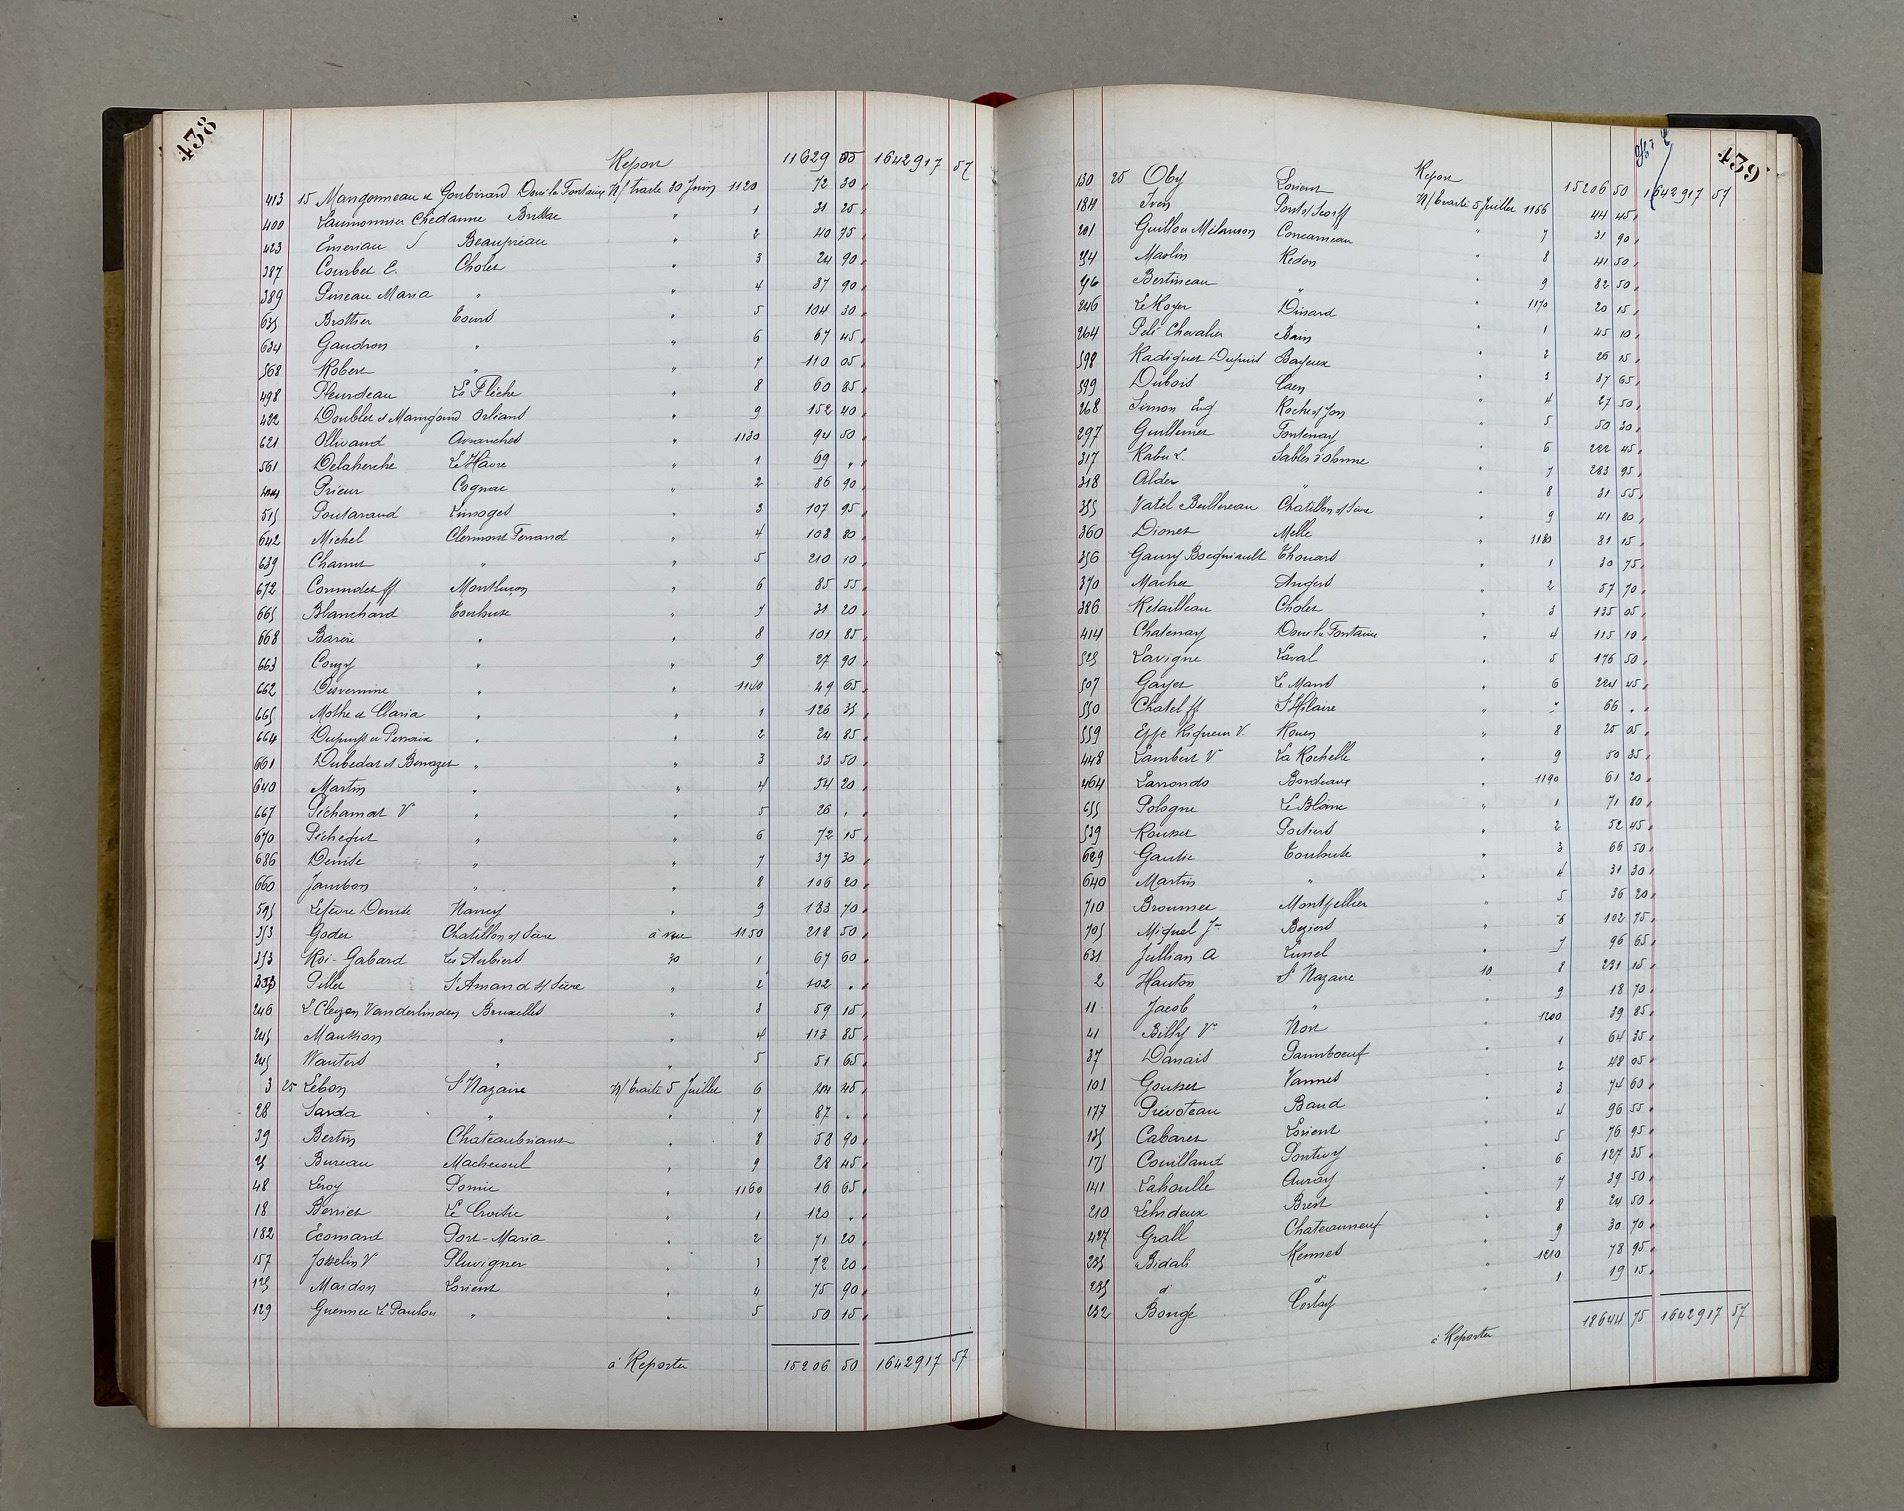 438
Report 11629 05 1642917 57
413 15 Mangonneau & Gourbinard Doué la Fontaine N/ traite 30 Juin 1120 72 30
400 Laumonnier Chédanne Brillac " 1 31 25
423 Emeriau J Beaupréau " 2 40 75
387 Courbet E. Cholet " 3 24 90
389 Pineau Maria " " 4 37 90
635 Brottier Tours " 5 104 30
634 Gaudron " " 6 67 45
568 Robert " " 7 110 05
498 Fleurdeau La Flèche " 8 60 85
482 Doublet & Mamgound Orléans " 9 152 40
621 Ollivaud Avranches " 1130 94 50
561 Delaherche Le Hâvre " 1 69 "
Prieur Cognac " 2 86 90
515 Poutaraud Limoges " 3 107 95
642 Michel Clermont Ferrand " 4 108 80
639 Chamet " " 5 210 10
672 Commdeff Montluçon " 6 85 55
665 Blanchard Toulouse " 7 31 20
668 Barère " " 8 101 85
663 Couzy " " 9 27 90
662 Desvernine " " 1140 49 65
665 Mothe & Claria " " 1 126 35
664 Dupuys & Perroux " " 2 24 85
661 Dubedat & Benazet " " 3 33 50
640 Martin " " 4 34 20
667 Péchamat V " " 5 26 "
670 Péchegut " " 6 72 15
686 Denise " " 7 37 30
660 Jambon " " 8 106 20
595 Lefèvre Denise Nancy " 9 183 70
353 Godet Chatillon s/ Sèvre à vue 1150 218 50
313 Roi-Gabard Les Herbiers 30 1 67 60
353 Pillet St Amand s/ Sèvre " 2 102 "
246 L. Cleyzen Vanderlinden Bruxelles " 3 59 15
245 Maussion " " 4 113 85
245 Wauters " " 5 51 65
3 25 Lebon St Nazaire N/ traite 5 Juillet 6 244 45
28 Sarda " " 7 87 "
39 Bertin Chateaubriant " 8 58 90
25 Bureau Machecoul " 9 28 45
48 Leroy Pornic " 1160 16 65
18 Berriet Le Croisic " 1 120 "
182 Ecomard Port-Maria " 2 71 20
157 Josselin V Pluvigner " 3 72 20
125 Mardon Lorient " 4 75 90
129 Guennec Le Paulou " " 5 50 15
à Reporter 15206 50 1642917 57
439
Report 15206 50 1642917 57
130 25 Oby Lorient N/ traite 5 Juillet 1166 44 45
184 Iven Pont s/ Scorff " 7 31 90
201 Guillou Mélanson Concarneau " 8 41 50
Maolin Redon " 9 82 50
Bertineau " " 1170 20 15
246 Le Moyer Dinard " 1 45 10
264 Pelé Chevalier Bain " 2 26 15
598 Radiguet Dupuis Bayeux " 3 37 65
599 Dubois Caen " 4 27 50
268 Simon Eug Roche s/ Yon " 5 50 30
297 Guillemet Fontenay " 6 222 45
317 Rabu L. Sables d'Olonne " 7 283 95
318 Alder " " 8 31 55
355 Vatel Buillereau Chatillon s/ Sèvre " 9 41 80
360 Dionet Melle " 1180 81 15
356 Gaury Bocquiault Thouars " 1 30 75
370 Machet Angers " 2 57 70
386 Retailleau Cholet " 3 135 05
414 Chatenay Doué la Fontaine " 4 115 10
525 Lavigne Laval " 5 176 50
507 Gayet Le Mans " 6 224 45
550 Chatel ff St Hilaire " 7 66 "
559 Eppe Riqueur V. Rouen " 8 25 05
448 Lambert V La Rochelle " 9 50 35
464 Larrondo Bordeaux " 1190 61 20
655 Pologne Le Blanc " 1 71 80
539 Rousset Poitiers " 2 52 45
629 Gautié Toulouse " 3 66 50
640 Martin " " 4 31 30
710 Broumet Montpellier " 5 36 20
705 Miquel Jne Beziers " 6 102 75
631 Jullian A Lunel " 7 96 65
2 Hauton St Nazaire 10 8 231 15
11 Jacob " " 9 18 70
41 Billy Ve Nort " 1200 39 85
37 Danais Paimboeuf " 1 64 35
101 Gousset Vannes " 2 48 05
177 Prévoteau Baud " 3 74 60
135 Cabaret Lorient " 4 96 55
175 Couilland Pontivy " 5 76 95
141 Lahoulle Auray " 6 127 35
210 Lehideux Brest " 7 39 50
427 Grall Chateauneuf " 8 24 50
235 Bidali Rennes " 9 30 70
235 d° d° " 1210 78 95
232 Bougé Corlay " 1 19 15
à Reporter 18644 75 1642917 57